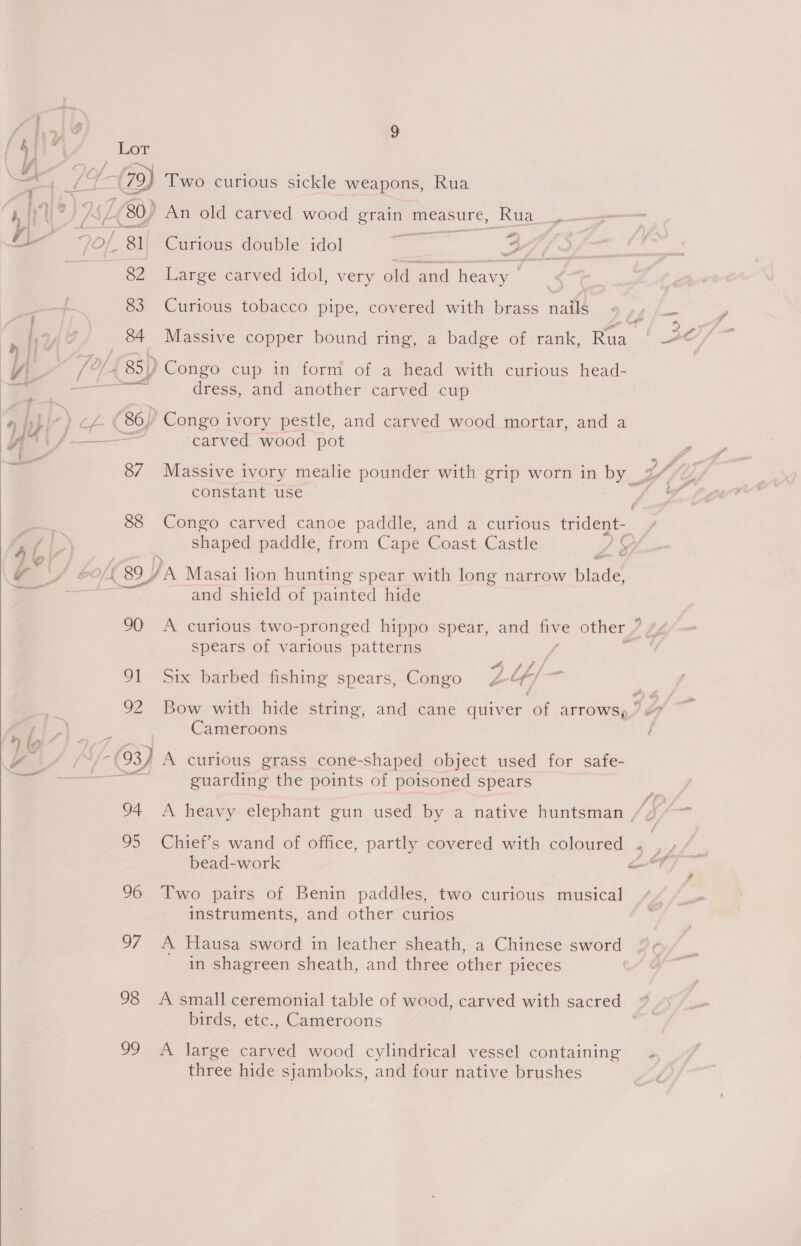 9
Lot
79 Two curious sickle weapons, Rua
80 An old carved wood grain measure, Rua
81 Curious double idol
82 Large carved idol, very old and heavy
83 Curious tobacco pipe, covered with brass nails
84 Massive copper bound ring, a badge of rank, Rua
85 Congo cup in form of a head with curious head-
dress, and another carved cup
86 Congo ivory pestle, and carved wood mortar, and a
carved wood pot
87 Massive ivory mealie pounder with grip worn in by
constant use
88 Congo carved canoe paddle, and a curious trident-
shaped paddle, from Cape Coast Castle
89 A Masai lion hunting spear with long narrow blade,
and shield of painted hide
90 A curious two-pronged hippo spear, and five other
spears of various patterns
91 Six barbed fishing spears, Congo
92 Bow with hide string, and cane quiver of arrows,
Cameroons
93 A curious grass cone-shaped object used for safe-
guarding the points of poisoned spears
94 A heavy elephant gun used by a native huntsman
95 Chief's wand of office, partly covered with coloured
bead-work
96 Two pairs of Benin paddles, two curious musical
instruments, and other curios
97 A Hausa sword in leather sheath, a Chinese sword
in shagreen sheath, and three other pieces
98 A small ceremonial table of wood, carved with sacred
birds, etc., Cameroons
99 A large carved wood cylindrical vessel containing
three hide sjamboks, and four native brushes